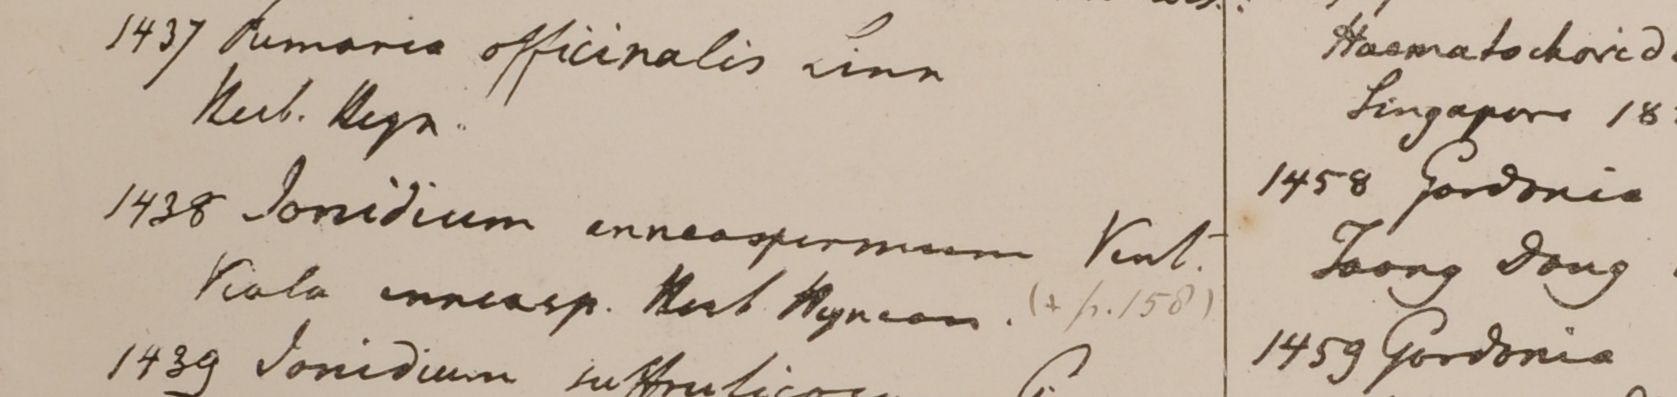 1437 Fumaria officinalis Linn
Herb. Heyn.
1438 Ionidium enneaspermum Vent.
Viola enneasp. Herb Heynean. (+ p. 158)
1439 Ionidium
Singapore 18
1458 Gordonia
Toong Dong
1459 Gordonia